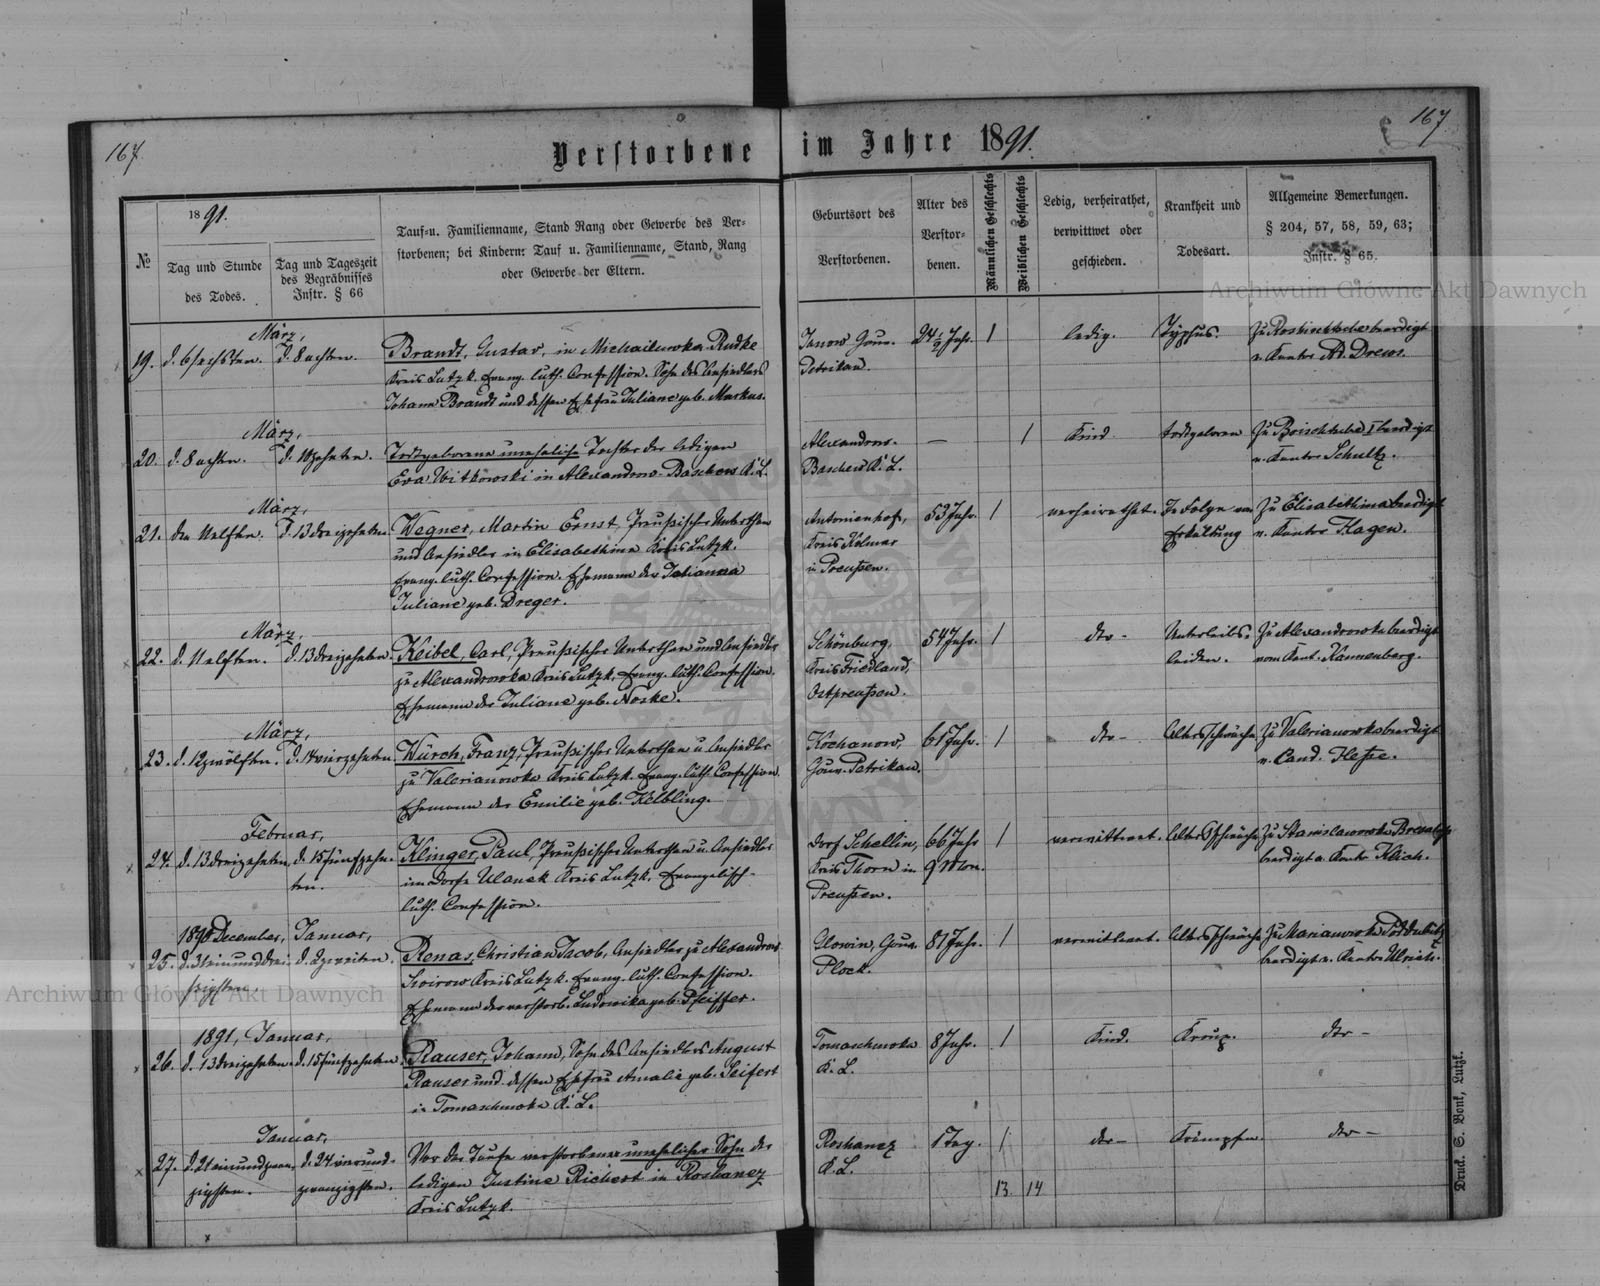 167.
167
Verstorbene im Jahre 1891.
№
1891.
Tag und Stunde
des Todes.
Tag und Tageszeit
des Begräbnisses
Instr. § 66
Tauf=u. Familienname, Stand Rang oder Gewerbe des Ver=
storbenen; bei Kindern: Tauf u. Familienname, Stand, Rang
oder Gewerbe der Eltern.
Geburtsort des
Verstorbenen.
Alter des
Verstor=
benen.
Männlichen Geschlechts
Weiblichen Geschlechts
Ledig, verheirathet,
verwittwet oder
geschieden.
Krankheit und
Todesart.
Allgemeine Bemerkungen.
§ 204, 57, 58, 59, 63;
Instr. § 65.
Archiwum Główne Akt Dawnych
März,
19. d. 6 sechsten. d. 8 achten.
Brandt, Gustav, in Michailuwka-Rudke
Kreis Lutzk. Evang. luth. Confession. Sohn des Ansiedlers
Johann Brandt und dessen Ehefrau Juliane geb. Markus.
Janow Gouv.
Petrikau.
24 Jahr. 1
ledig.
Typhus.
Zu Roshischtsche beerdigt
v. Kantor Ad. Drews.
März,
20. d. 8 achten. d. 10 zehnten.
Todtgeborene uneheliche Tochter der ledigen
Eva Witkowski in Alexandrow-Baschew K. L.
Alexandrow-
Baschew K. L.
— 1
Kind
todtgeboren
Zu Boischtsche I beerdigt
v. Kantor Schultz.
März,
21. den 11 elften. d. 13 dreizehnten.
Wegner, Martin Ernst, Preußischer Unterthan
und Ansiedler in Elisabethina Kreis Lutzk.
Evang. luth. Confession. Ehemann der Johanna
Juliane geb. Dreger.
Antonienhof,
Kreis Kolmar
in Preußen.
53 Jahr. 1
verheirathet.
In Folge von
Erkältung
Zu Elisabethina beerdigt
v. Kantor Hagen.
März,
22. d. 11 elften. d. 13 dreizehnten.
Keibel, Carl, Preußischer Unterthan und Ansiedler
zu Alexandrowka Kreis Lutzk. Evang. luth. Confession.
Ehemann der Juliane geb. Noske.
Schönburg,
Kreis Friedland,
Ostpreußen.
54 Jahr. 1
dto -
Unterleibs-
leiden.
Zu Alexandrowka beerdigt
vom Kant. Kannenberg.
März,
23. d. 12 zwölften. d. 14 vierzehnten.
Würch, Franz, Preußischer Unterthan u. Ansiedler
zu Valerianowka Kreis Lutzk. Evang. luth. Confession.
Ehemann der Emilie geb. Kelbling.
Kochanow,
Gouv. Petrikau.
61 Jahr. 1
dto -
Altersschwäche
Zu Valerianowka beerdigt
v. Cand.
Februar,
24. d. 13 dreizehnten. d. 15 fünfzehn-
ten.
Klinger, Paul, Preußischer Unterthan u. Ansiedler
im Dorfe Ulanek Kreis Lutzk. Evangelisch-
luth. Confession.
Dorf Schellin,
Kreis Thorn in
Preußen.
66 Jahr
9 Mon. 1
verwittwet.
Altersschwäche
Zu Stanislawowka
beerdigt v. Kantor Klich.
1890 December, Januar,
25. d. 31 einunddrei- d. 2 zweiten.
ßigsten.
Renas, Christian Jacob, Ansiedler zu Alexandrow
Kreis Lutzk. Evang. luth. Confession.
Ehemann der verstorb. Ludowika geb. Pfeiffer.
Glowin, Gouv.
Plock.
81 Jahr. 1
verwittwet.
Altersschwäche
Zu Marianowka
beerdigt v. Kantor Ulrich.
Archiwum Główne Akt Dawnych
1891, Januar,
26. d. 13 dreizehnten. d. 15 fünfzehnten.
Rauser, Johann, Sohn des Ansiedlers August
Rauser und dessen Ehefrau Amalie geb. Seifert
in Tomaschewka K. L.
Tomaschewka
K. L.
8 Jahr. 1
Kind.
Kroup.
dto -
Januar,
27. d. 21 einundzwan- d. 24 vierund-
zigsten. zwanzigsten.
Vor der Taufe verstorbener unehelicher Sohn der
ledigen Justine Richert in Roshanez
Kreis Lutzk.
Roshanez
K. L.
1 Tag. 1
dto -
Krämpfen.
dto -
13. 14
Druck. S. Bonk, Lutzk.